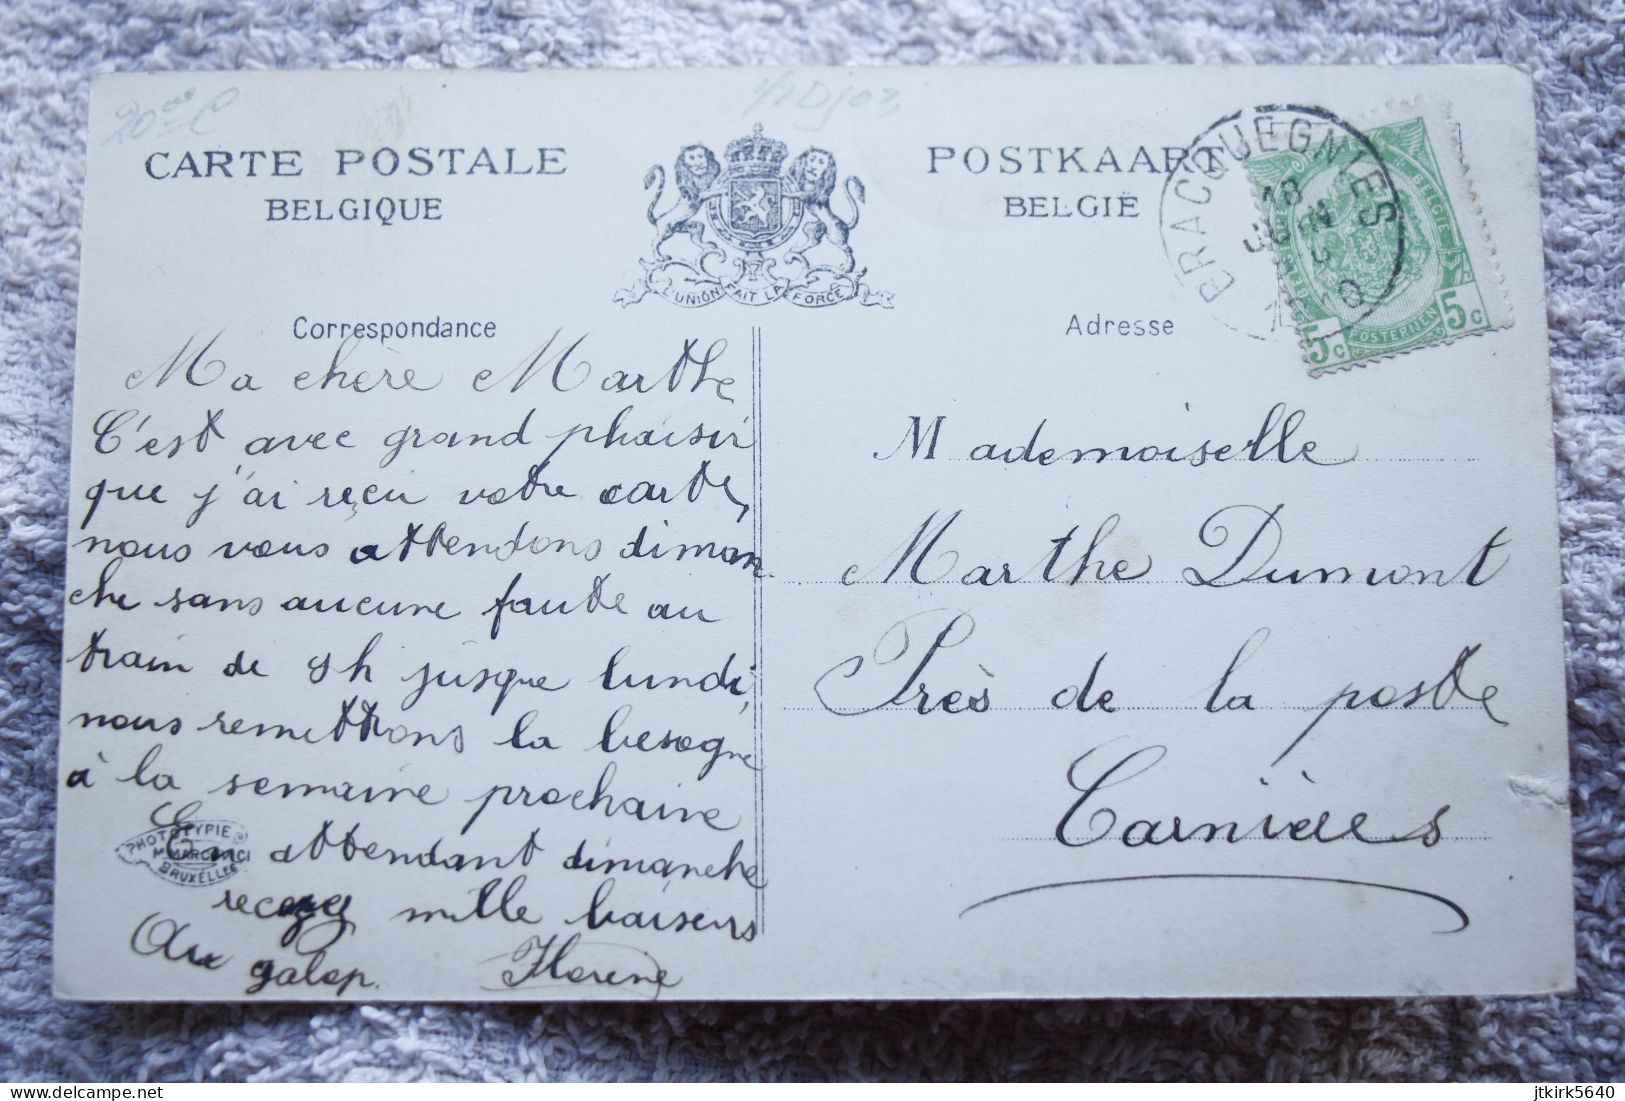 CARTE POSTALE
BELGIQUE
POSTKAART
BELGIË
L'UNION FAIT LA FORCE
BRACQUEGNIES
BELGIE
POSTERIJEN
5c 5c
Correspondance
Adresse
Ma chère Marthe
C'est avec grand phaisir
que j'ai reçu votre carte,
nous vous attendons diman
che sans aucune faute au
train de 9h jusque lundi,
nous remettrons la besogne
à la semaine prochaine
En attendant dimanche
recevez mille baisers
Au galop. Florene
PHOTOTYPIE
MARCOVICI
BRUXELLES
Mademoiselle
Marthe Dumont
Près de la poste
Carnières
jtkirk5640